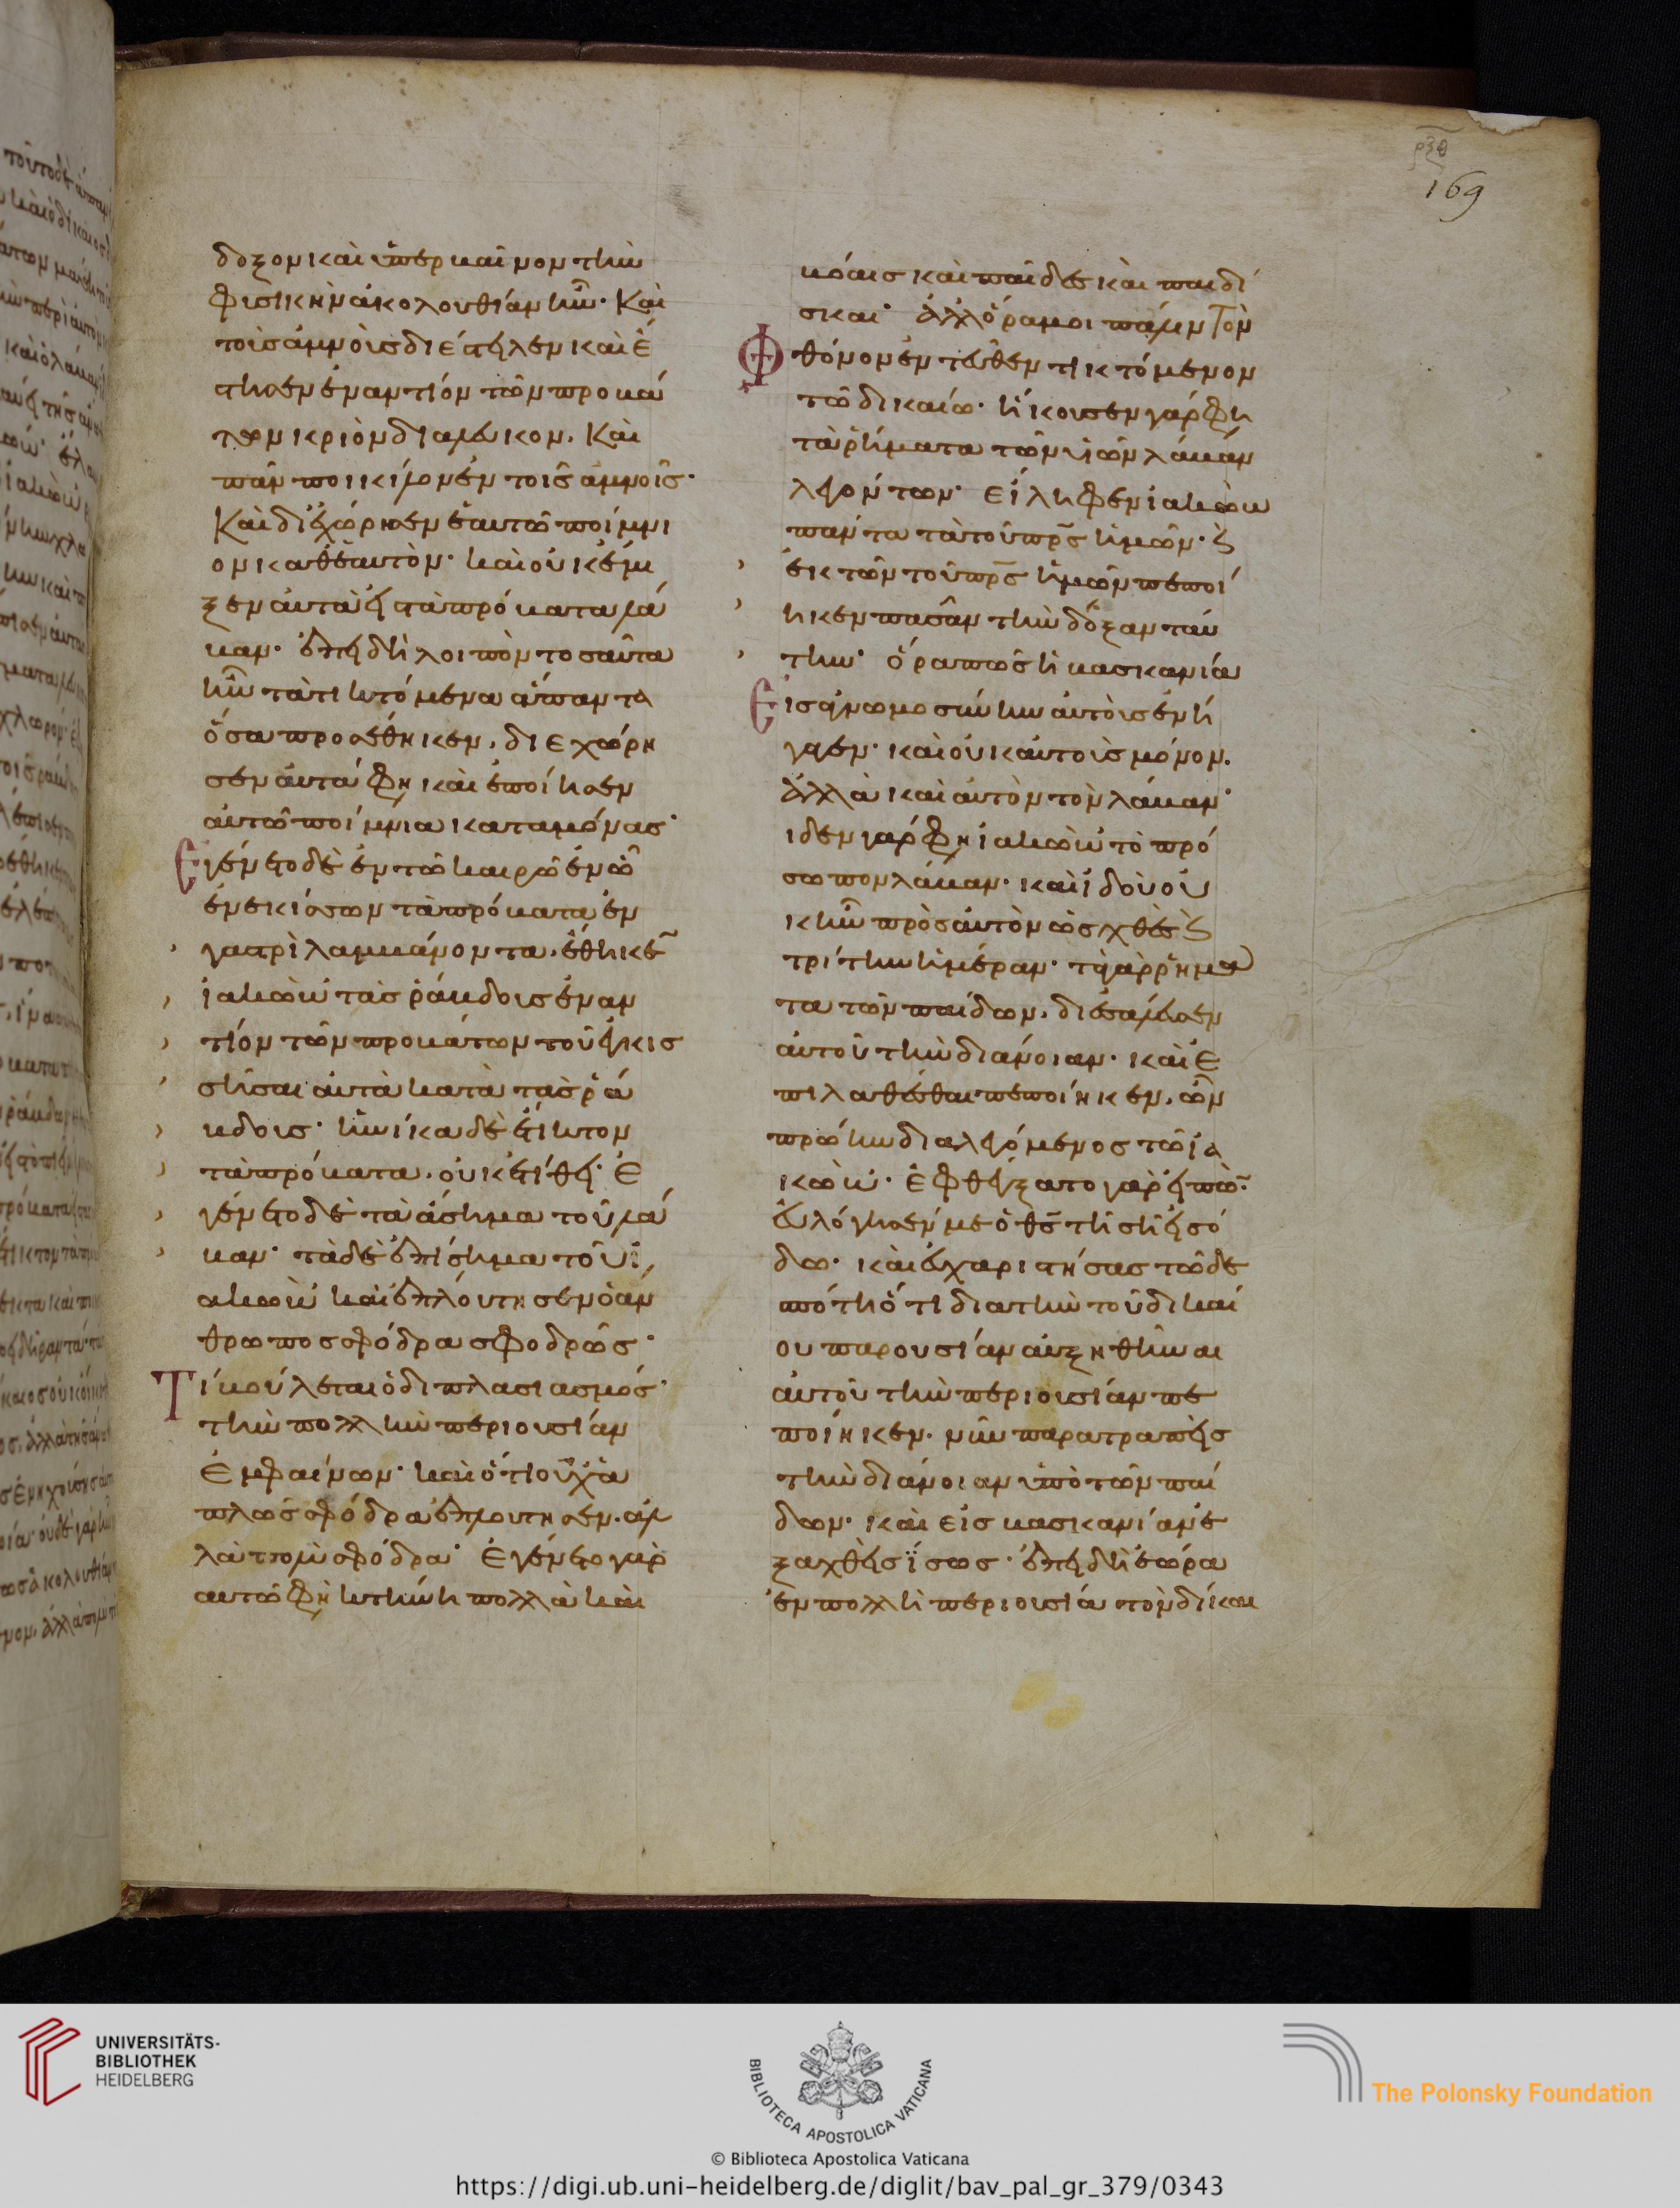 ρξθ
169
δοξον καὶ ὑπερβαῖνον τὴν
φυσικὴν ἀκολουθίαν ἦν· Καὶ
τοὺς ἀμνοὺς διέστειλεν καὶ ἔ
στησεν ἐναντίον τῶν προβά
των κριὸν διάλευκον. Καὶ
πᾶν ποικίλον ἐν τοῖς ἀμνοῖς·
Καὶ διεχώρησεν ἑαυτῶ ποίμνι
ον καθ ἑαυτὸν· καὶ οὐκ ἔμι
ξεν αὐτὰ εἰς τὰ πρόβατα λά
βαν· ἐπειδὴ λοιπὸν τοσαῦτα
ἦν τὰ τικτόμενα ἅπαντα
ὅσα προσέθηκεν, διεχώρη
σεν αὐτά φη καὶ ἐποίησεν
αὐτῶ ποίμνια καταμόνας·
Ἐγένετο δὲ ἐν τῶ καιρῶ ἐν ὧ
ἐνεκίσσων τὰ πρόβατα ἐν
γαστρὶ λαμβάνοντα, ἔθηκε̅
ἰακὼβ τὰς ῥάβδους ἐναν
τίον τῶν προβάτων τοῦ ἐγκισ
σῆσαι αὐτὰ κατὰ τὰς ῥά
βδους· ἡνίκα δὲ ἔτικτον
τὰ πρόβατα, οὐκ ἐτίθει· Ἐ
γένετο δὲ τὰ ἄσημα τοῦ λά
βαν· τὰ δὲ ἐπίσημα τοῦ ϊ
ακὼβ καὶ ἐπλούτησεν ὁ ἄν
θρωπος σφόδρα σφοδρῶς·
Τί βούλεται ὁ διπλασιασμός·
τὴν πολλὴν περιουσίαν
ἐμφαίνων· καὶ ὅτι οὐχ ἁ
πλῶς σφόδρα ἐπλούτησεν. ἀλ
λὰ πολὺ σφόδρα· Ἐγένετο γὰρ
αὐτῶ φη κτήνη πολλὰ καὶ
βόες καὶ παῖδες καὶ παιδί
σκαι· ἀλλ ὅρα μοι πάλιν Τὸν
φθόνον ἐντεῦθεν τικτόμενον
τῶ δικαίω· ἤκουσεν γάρ φη
τὰ ῥήματα τῶν υἱῶν λάβαν
λεγόντων· εἴληφεν ἰακὼβ
πάντα τὰ τοῦ πρ̅ς ἡμῶν· ϗ
ἐκ τῶν τοῦ πρ̅ς ἡμῶν πεποί
ηκεν πᾶσαν τὴν δόξαν ταύ
την· ὅρα πῶς ἡ βασκανία
εἰς ἀγνωμοσύνην αὐτοὺς ἐνή
γαγεν· καὶ οὐκ αὐτοὺς μόνον.
ἀλλὰ καὶ αὐτὸν τὸν λάβαν·
ιδεν γάρ φη ἰακὼβ τὸ πρό
σωπον λάβαν· καὶ ἰδοὺ οὐ
κ ἦν πρὸς αὐτὸν ὡς χθὲς ϗ
τρίτην ἡμέραν· τὰ γὰρ ῥήμα
τα τῶν παίδων, διεσάλευσεν
αὐτοῦ τὴν διάνοιαν· καὶ ἐ
πιλαθέσθαι πεποίηκεν, ὧν
πρώην διαλεγόμενος τῶ ἰα
κὼβ· ἐφθέγξατο γὰρ εἰπών·
εὐλόγησέν με ὁ θ̅ς τῆ σῆ εἰσό
δω· καὶ εὐχαριστήσας τῶ δε
σπότη ὅτι δια τὴν τοῦ δικαί
ου παρουσίαν αὐξηθῆναι
αὐτοῦ τὴν περιουσίαν πε
ποίηκεν. νῦν παρατραπεὶς
τὴν διάνοιαν ὑπὸ τῶν παί
δων· καὶ εἰς βασκανίαν ἐ
ξαχθεὶς ἴσως· ἐπειδὴ ἑώρα
ἐν πολλῆ περιουσία τὸν δίκαι
UNIVERSITÄTS-
BIBLIOTHEK
HEIDELBERG
BIBLIOTECA APOSTOLICA VATICANA
The Polonsky Foundation
© Biblioteca Apostolica Vaticana
https://digi.ub.uni-heidelberg.de/diglit/bav_pal_gr_379/0343